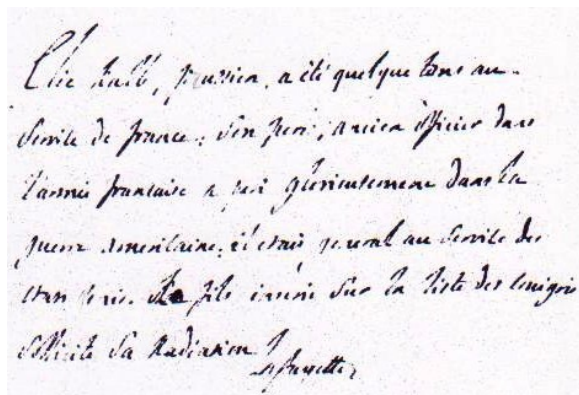 Elie Kalb, prussien, a été quelque tems au
Service de france; Son pere, ancien officier dans
l'armée francaise a peri glorieusement dans la
guerre americaine, il etait general au Service des
etats unis. Le fils inscrit Sur la liste des émigrés
Sollicite Sa Radiation
Lafayette